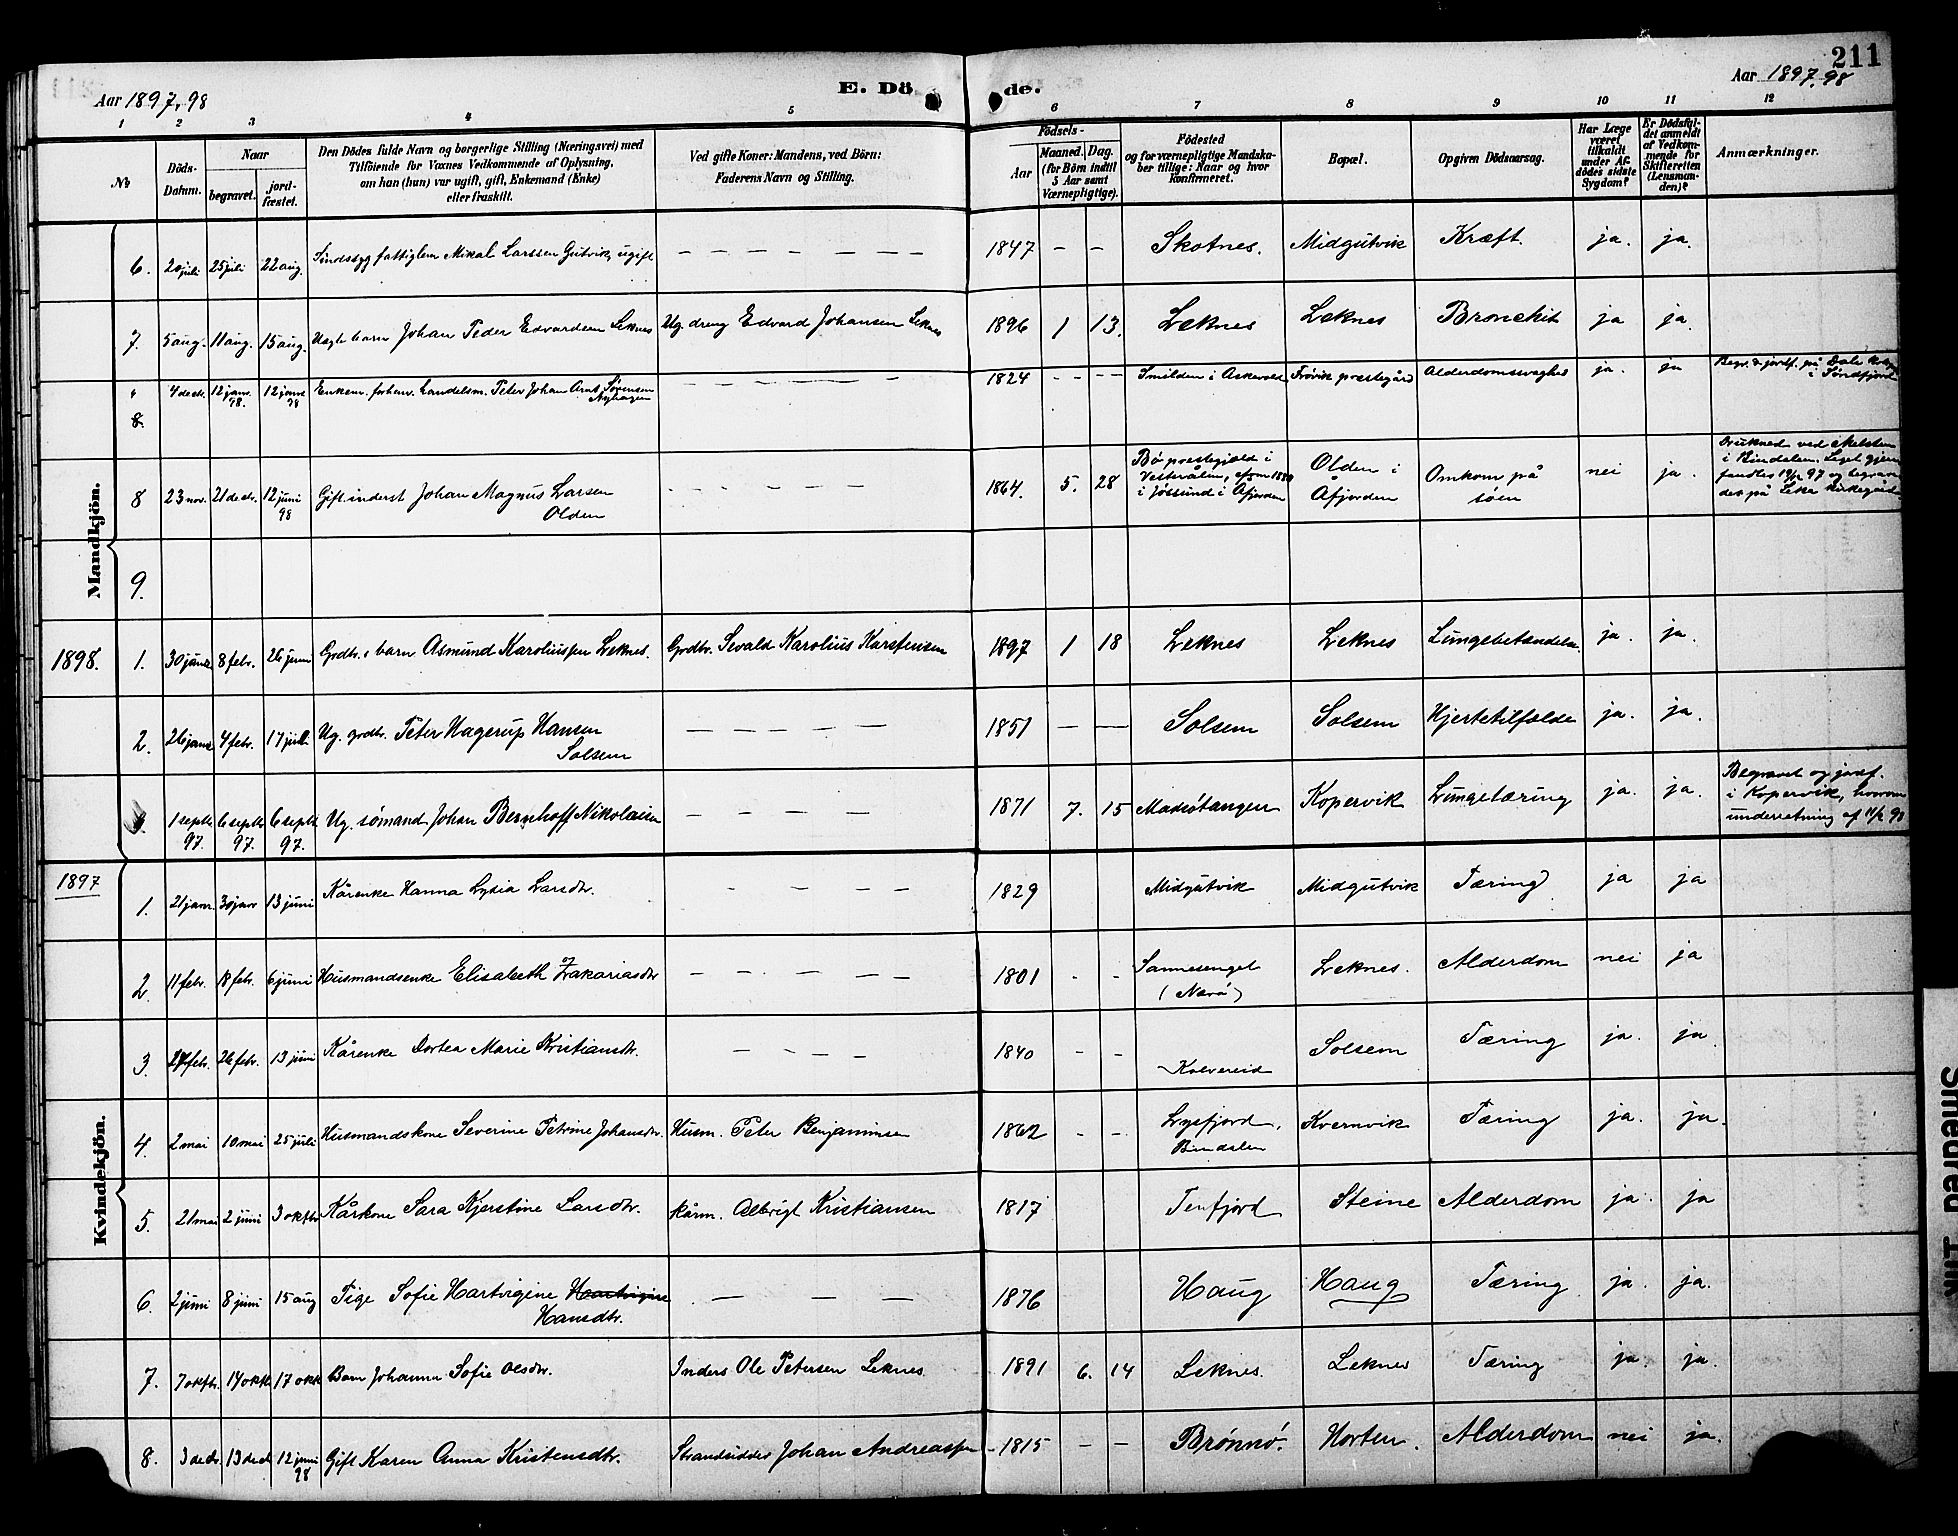 211
Aar 1897, 98
E. Dö de.
Aar 1897, 98
1 2 3 4 5 6 7 8 9 10 11 12
No
Döds-Datum.
Naar
begravet.
jord-fæstet.
Den Dödes fulde Navn og borgerlige Stilling (Næringsvei) med
Tilföiende for Voxnes Vedkommende af Oplysning,
om han (hun) var ugift, gift, Enkemand (Enke)
eller fraskilt.
Ved gifte Koner: Mandens, ved Börn:
Faderens Navn og Stilling.
Födsels-
Aar
Maaned. Dag.
(for Börn indtil
5 Aar samt
Værnepligtige).
Födested
og for værnepligtige Mandska-
ber tillige: Naar og hvor
konfirmeret.
Bopæl.
Opgiven Dödsaarsag.
Har Læge
været
tilkaldt
under Af-
dödes sidste
Sygdom?
Er Dödsfal-
det anmeldt
af Vedkom-
mende for
Skifteretten
(Lensman-
den)?
Anmærkninger.
Mandkjön.
6. 20 juli 25 juli 22 aug. Sindssyg fattiglem Mikal Larssen Gutvik, ugift — — — — — — 1847 — — Skotnes. Midgutvik Kræft. ja. ja.
7. 5 aug. 11 aug. 15 aug. Uægte barn Johan Peder Edvardsen Leknes Ug. dreng Edvard Johansen Leknes 1896 1 13. Leknes Leknes Bronchit ja ja.
8. 4 decb. 12 janr. 98. 12 janr. 98 Enkem. forhenv. Landelsm. Peter Johan Arnt Sørensen — — — — — — 1824 — — — Smilden i Askevold Frøvik præstegård Alderdomssvaghed ja. ja Begr. & jordf. på Dale
i Søndfjord
8 23 nov. 21 decb. 12 juni 98 Gift inderst Johan Magnus Larsen
Olden — — — — — — 1864. 5. 28 Bø præstegjeld i
Vesterålen,
i Jøssund i Åfjorden Olden i
Åfjorden Omkom på
søen nei ja. Drukned ved
i Bindalen. Liget gjen
fandtes 19/12 97 og begrav
des på Leka kirkegård
9.
1898. 1. 30 janr. 8 febr. 26 juni Grdbr.s barn Asmund Karoliussen Leknes. Grdbr. Sevald Karolius Karstensen 1897 1 18 Leknes Leknes Lungebetændelse ja. ja.
2. 26 janr. 4 febr. 17 juli Ug. grdbr. Peter Hagerup Hansen
Solsem — — — — — 1851 — — Solsem Solsem Hjertetilfælde ja. ja.
1 septb. 97. 6 septb. 97. 6 septb. 97. Ug. sømand Johan Bernhoff Nikolaisen — — — — 1871 7. 15 Madsøtangen Kopervik Lungetæring ja. ja. Begravet og jordf.
i Kopervik, hvorom
underretning af 11/2 98
Kvindekjön.
1897 1. 21 janr. 30 janr 13 juni Kårenke Hanna Lydia Larsdtr. — — — — 1829 Midgutvik Midgutvik Tæring ja ja
2. 11 febr. 18 febr. 6 juni Husmandsenke Elisabeth Zakariasdtr — — — — — 1801 - - Sannesenget
(Nærø) Leknes. Alderdom nei ja
3. febr. 26 febr. 13 juni Kårenke Dortea Marie Kristiansdtr. — — — — 1840 - - Kolvereid Solsem Tæring ja. ja.
4. 2 mai 10 mai 25 juli Husmandskone Severine Petrine Johansdtr. Husm. Peter Benjaminsen 1862 - - Lysfjord,
Bindalen Kvernvik Tæring ja. ja.
5. 21 mai 2 juni 3 oktbr Kårkone Sara Kjerstine Larsdtr. Kårm. Albrigt Kristiansen 1817 Terfjord Steine Alderdom ja. ja
6. 2 juni 8 juni 15 aug Pige Sofie Hartvigine Hartvigine
Hansdtr. — — — — 1876 Haug Haug Tæring ja. ja.
7. 7 oktbr. 14 oktb. 17 oktb. Barn Johanna Sofie Olsdtr. Inders Ole Petersen Leknes. 1891 6. 14 Leknes. Leknes Tæring ja. ja.
8. 3 decb. 13 decb. 12 juni 98 Gift Karen Anna Kristensdtr. Strandsidder Johan Andreassen 1815 — — Brønnø. Horten. Alderdom nei ja.
Smeared Ink